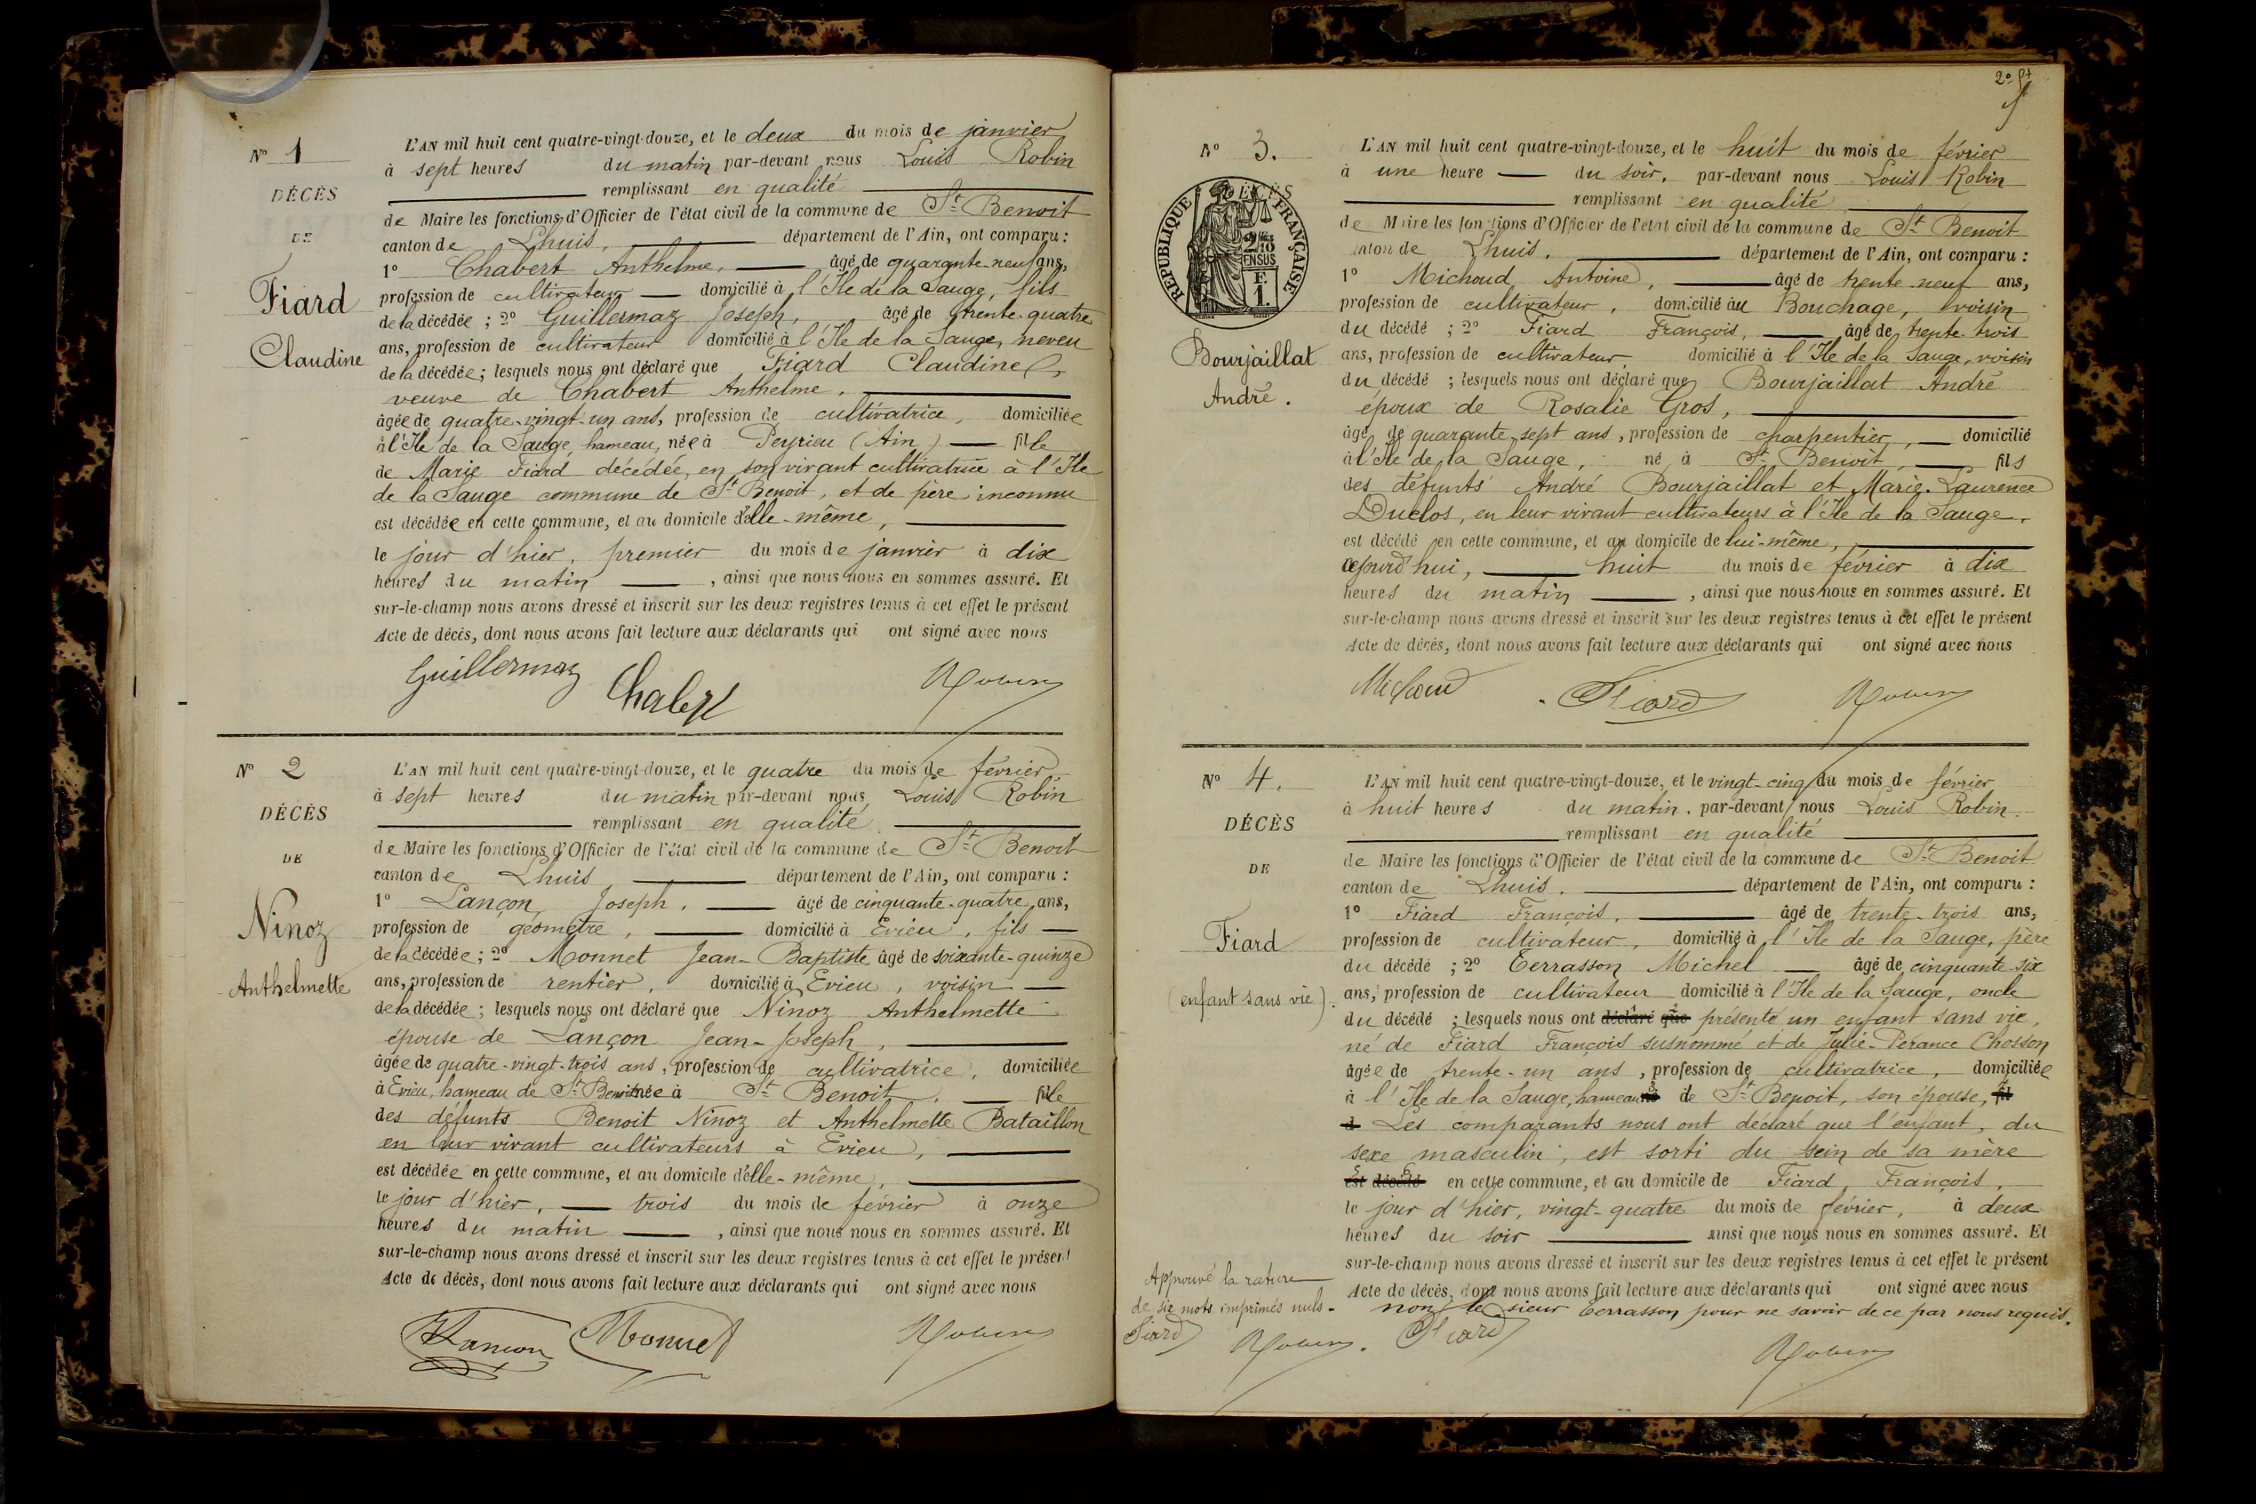 Nº 1
DÉCÈS
DE
Fiard
Claudine
L'AN mil huit cent quatre-vingt-douze, et le deux du mois de janvier
à sept heures du matin par-devant nous Louis Robin
remplissant en qualité
de Maire les fonctions d'Officier de l'état civil de la commune de St Benoit
canton de Lhuis, département de l'Ain, ont comparu :
1º Chabert Anthelme, âgé de quarante-neuf ans,
profession de cultivateur domicilié à l'Ile de la Sauge, fils
de la décédée ; 2º Guillermaz Joseph, âgé de trente-quatre
ans, profession de cultivateur domicilié à l'Ile de la Sauge, neveu
de la décédée ; lesquels nous ont déclaré que Fiard Claudine
veuve de Chabert Anthelme,
âgée de quatre-vingt-un ans, profession de cultivatrice, domiciliée
à l'Ile de la Sauge, hameau, née à Peyrieu (Ain) fille
de Marie Fiard décédée, en son vivant cultivatrice à l'Ile
de la Sauge commune de St Benoit, et de père inconnu
est décédée en cette commune, et au domicile d'elle-même,
le jour d'hier, premier du mois de janvier à dix
heures du matin, ainsi que nous nous en sommes assuré. Et
sur-le-champ nous avons dressé et inscrit sur les deux registres tenus à cet effet le présent
Acte de décès, dont nous avons fait lecture aux déclarants qui ont signé avec nous
Guillermaz Chabert Robin
Nº 2
DÉCÈS
DE
Ninoz
Anthelmette
L'AN mil huit cent quatre-vingt-douze, et le quatre du mois de février
à sept heures du matin par-devant nous Louis Robin
remplissant en qualité
de Maire les fonctions d'Officier de l'état civil de la commune de St Benoit
canton de Lhuis département de l'Ain, ont comparu :
1º Lançon Joseph, âgé de cinquante-quatre ans,
profession de géomètre, domicilié à Evieu, fils
de la décédée ; 2º Monnet Jean-Baptiste âgé de soixante-quinze
ans, profession de rentier, domicilié à Evieu, voisin
de la décédée ; lesquels nous ont déclaré que Ninoz Anthelmette
épouse de Lançon Jean-Joseph,
âgée de quatre-vingt-trois ans, profession de cultivatrice, domiciliée
à Evieu, hameau de St Benoit née à St Benoit, fille
des défunts Benoit Ninoz et Anthelmette Bataillon
en leur vivant cultivateurs à Evieu,
est décédée en cette commune, et au domicile d'elle-même,
le jour d'hier, trois du mois de février à onze
heures du matin, ainsi que nous nous en sommes assuré. Et
sur-le-champ nous avons dressé et inscrit sur les deux registres tenus à cet effet le présent
Acte de décès, dont nous avons fait lecture aux déclarants qui ont signé avec nous
Lançon Monnet Robin
2º
Nº 3.
DÉCÈS
RÉPUBLIQUE FRANÇAISE
2/10 EN SUS
F. 1.
Bourjaillat
André.
L'AN mil huit cent quatre-vingt-douze, et le huit du mois de février
à une heure du soir, par-devant nous Louis Robin
remplissant en qualité
de Maire les fonctions d'Officier de l'état civil de la commune de St Benoit
canton de Lhuis, département de l'Ain, ont comparu :
1º Michoud Antoine, âgé de trente-neuf ans,
profession de cultivateur, domicilié au Bouchage, voisin
du décédé ; 2º Fiard François, âgé de trente-trois
ans, profession de cultivateur domicilié à l'Ile de la Sauge, voisin
du décédé ; lesquels nous ont déclaré que Bourjaillat André
époux de Rosalie Gros,
âgé de quarante-sept ans, profession de charpentier, domicilié
à l'Ile de la Sauge, né à St Benoit, fils
des défunts André Bourjaillat et Marie-Laurence
Duclos, en leur vivant cultivateurs à l'Ile de la Sauge,
est décédé en cette commune, et au domicile de lui-même,
cejourd'hui, huit du mois de février à dix
heures du matin, ainsi que nous nous en sommes assuré. Et
sur-le-champ nous avons dressé et inscrit sur les deux registres tenus à cet effet le présent
Acte de décès, dont nous avons fait lecture aux déclarants qui ont signé avec nous
Michoud Fiard Robin
Nº 4.
DÉCÈS
DE
Fiard
(enfant sans vie).
L'AN mil huit cent quatre-vingt-douze, et le vingt-cinq du mois de février
à huit heures du matin, par-devant nous Louis Robin
remplissant en qualité
de Maire les fonctions d'Officier de l'état civil de la commune de St Benoit
canton de Lhuis, département de l'Ain, ont comparu :
1º Fiard François, âgé de trente-trois ans,
profession de cultivateur, domicilié à l'Ile de la Sauge, père
du décédé ; 2º Terrasson Michel âgé de cinquante-six
ans, profession de cultivateur domicilié à l'Ile de la Sauge, oncle
du décédé ; lesquels nous ont déclaré que présenté un enfant sans vie,
né de Fiard François susnommé et de Julie-Pérance Chosson
âgée de trente-un ans, profession de cultivatrice, domiciliée
à l'Ile de la Sauge, hameau né de St Benoit, son épouse, fil
d Les comparants nous ont déclaré que l'enfant, du
sexe masculin, est sorti du sein de sa mère
est décédé en cette commune, et au domicile de Fiard François,
le jour d'hier, vingt-quatre du mois de février, à deux
heures du soir ainsi que nous nous en sommes assuré. Et
sur-le-champ nous avons dressé et inscrit sur les deux registres tenus à cet effet le présent
Acte de décès, dont nous avons fait lecture aux déclarants qui ont signé avec nous
non le sieur Terrasson pour ne savoir de ce par nous requis.
Approuvé la rature
de six mots imprimés nuls.
Fiard Robin. Fiard Robin